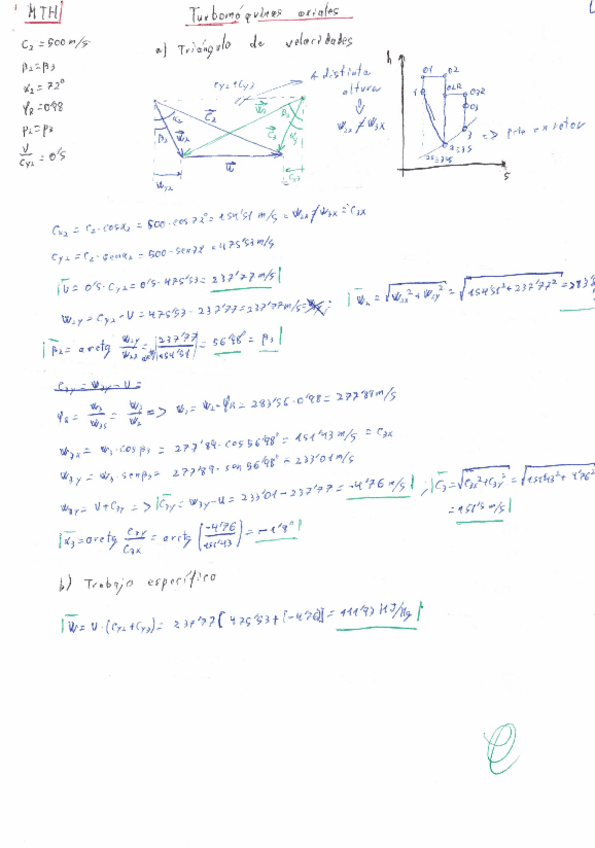 MTH
Turbomáquinas axiales
C₂ = 500 m/s
β₂ = β₃
α₂ = 72º
φR = 0'98
p₂ = p₃
U/Cy₂ = 0'5
a) Triángulo de velocidades
Cy₂+Cy₃
A distinta altura
W₂x ≠ W₃x
h
01
02
02R
03R
03
1
3
s
Cx₂ = C₂·cosα₂ = 500·cos72º = 154'51 m/s = W₂x ≠ W₃x = C₃x
Cy₂ = C₂·senα₂ = 500·sen72 = 475'53 m/s
U = 0'5·Cy₂ = 0'5·475'53 = 237'77 m/s
W₂y = Cy₂ - U = 475'53 - 237'77 = 237'77 m/s ; W₂ = √(W₂x² + W₂y²) = √(154'51² + 237'77²) = 283'5
β₂ = arctg W₂y/W₂x = arctg |237'77/154'51| = 56'98º = β₃
C₃y = W₃y - U =
φR = W₃/W₃s = W₃/W₂ => W₃ = W₂·φR = 283'56·0'98 = 277'89 m/s
W₃x = W₃·cosβ₃ = 277'89·cos56'98º = 151'43 m/s = C₃x
W₃y = W₃·senβ₃ = 277'89·sen56'98º = 233'01 m/s
W₃y = U + C₃y => C₃y = W₃y - U = 233'01 - 237'77 = -4'76 m/s ; C₃ = √(C₃x² + C₃y²) = √(151'43² + 4'76²
= 151'5 m/s
α₃ = arctg C₃y/C₃x = arctg (-4'76/151'43) = -1'8º
b) Trabajo específico
W = U·(Cy₂ + Cy₃) = 237'77 [475'53 + (-4'76)] = 111'93 kJ/kg